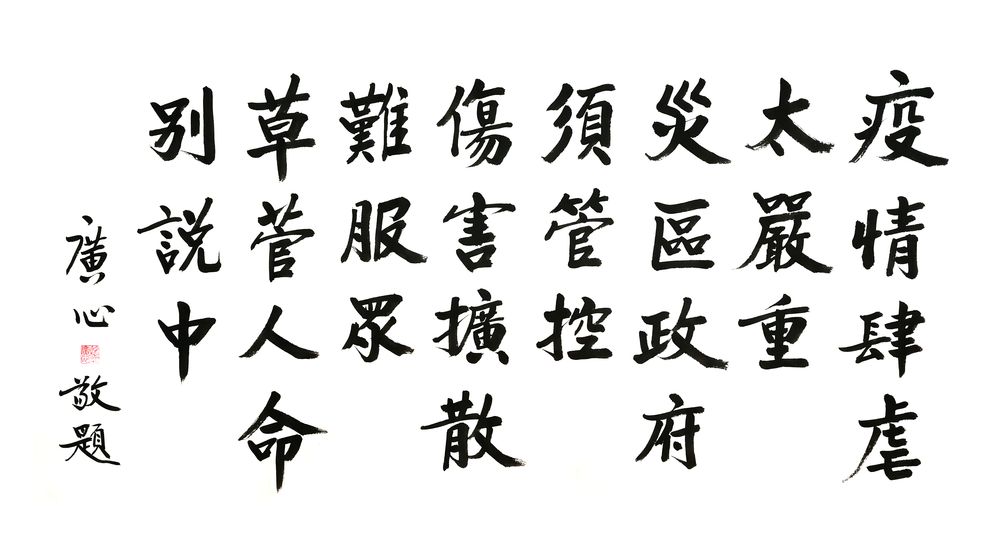 疫情肆虐
太嚴重
災區政府
須管控
傷害擴散
難服眾
草菅人命
别説中
廣心敬題